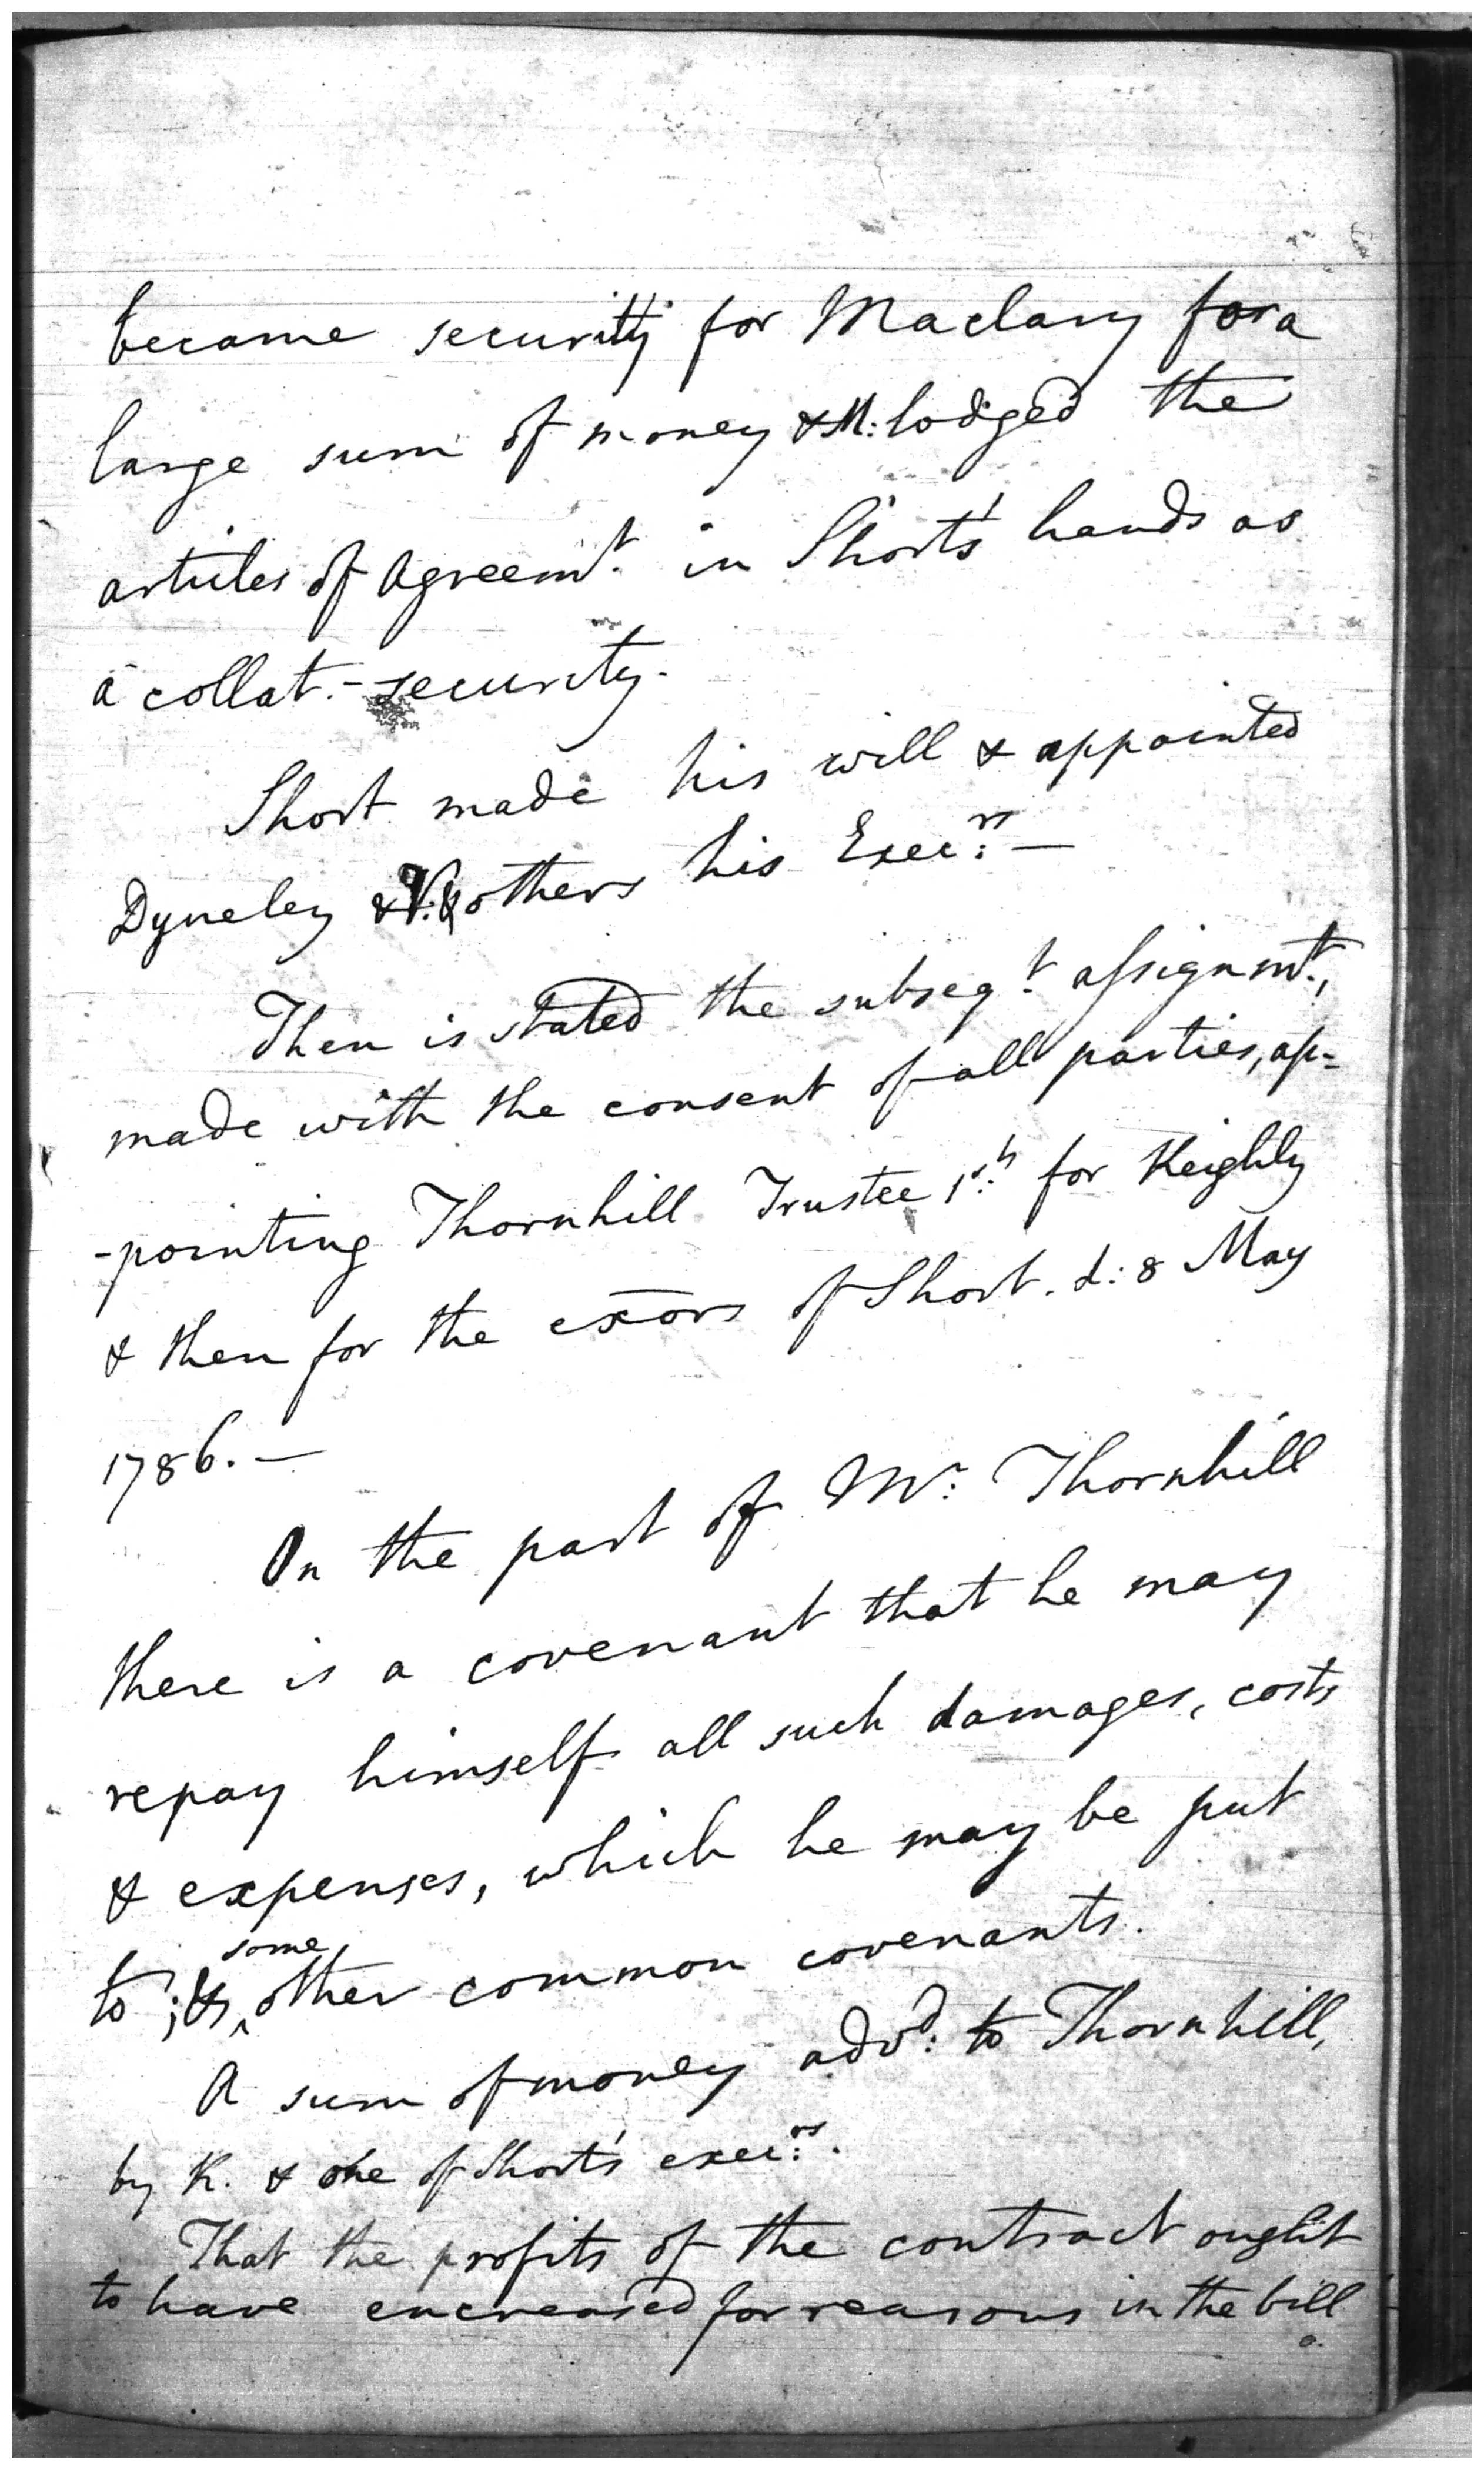 became security for Maclary for a
large sum of money & M: lodged the
articles of Agreemt. in Short's hands as
a collat.- security.
Short made his will & appointed
Dyneley & others his Execrs: —
Then is stated the subseqt. assignmt.,
made with the consent of all parties, ap-
-pointing Thornhill Trustee 1st: for Keighly
& then for the exōrs of Short. d: 8 May
1786. —
On the part of Mr: Thornhill
there is a covenant that he may
repay himself all such damages, costs
& expenses, which he may be put
to; & some other common covenants.
A sum of money advd: to Thornhill,
by K. & one of Short's execrs:.
That the profits of the contract ought
to have encreased for reasons in the bill